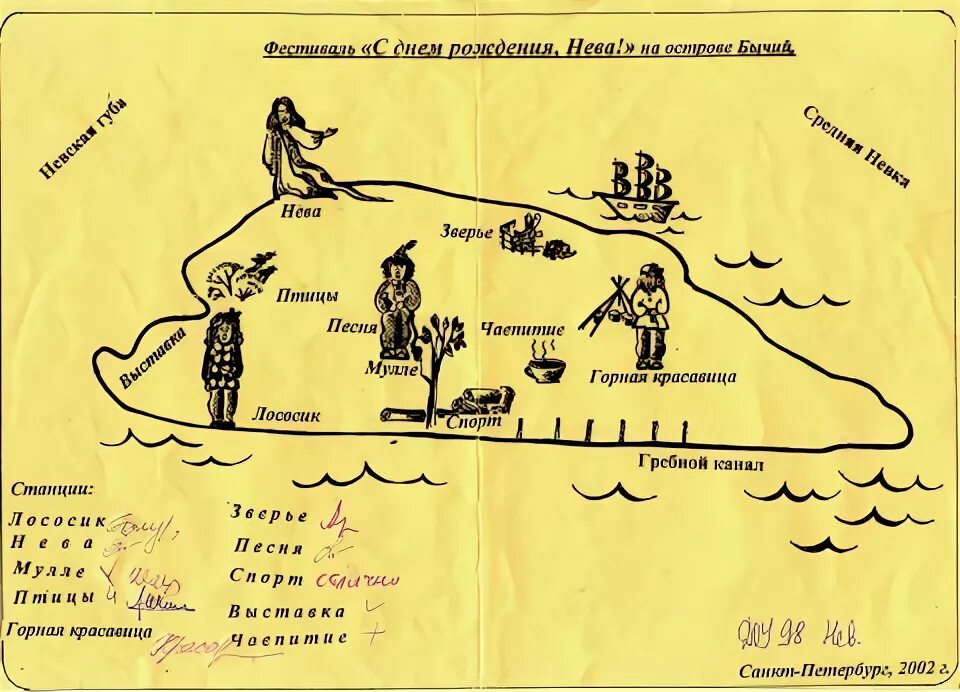 Фестиваль «С днем рождения, Нева!» на острове Бычий.
Невская губа
Средняя Невка
Нева
Зверье
Птицы
Песня
Чаепитие
Выставка
Мулле
Горная красавица
Лососик
Спорт
Гребной канал
Станции:
Лососик
Нева
Мулле
Птицы
Горная красавица
Зверье
Песня
Спорт отлично
Выставка
Чаепитие +
ДОУ 98 Нев.
Санкт-Петербург, 2002 г.